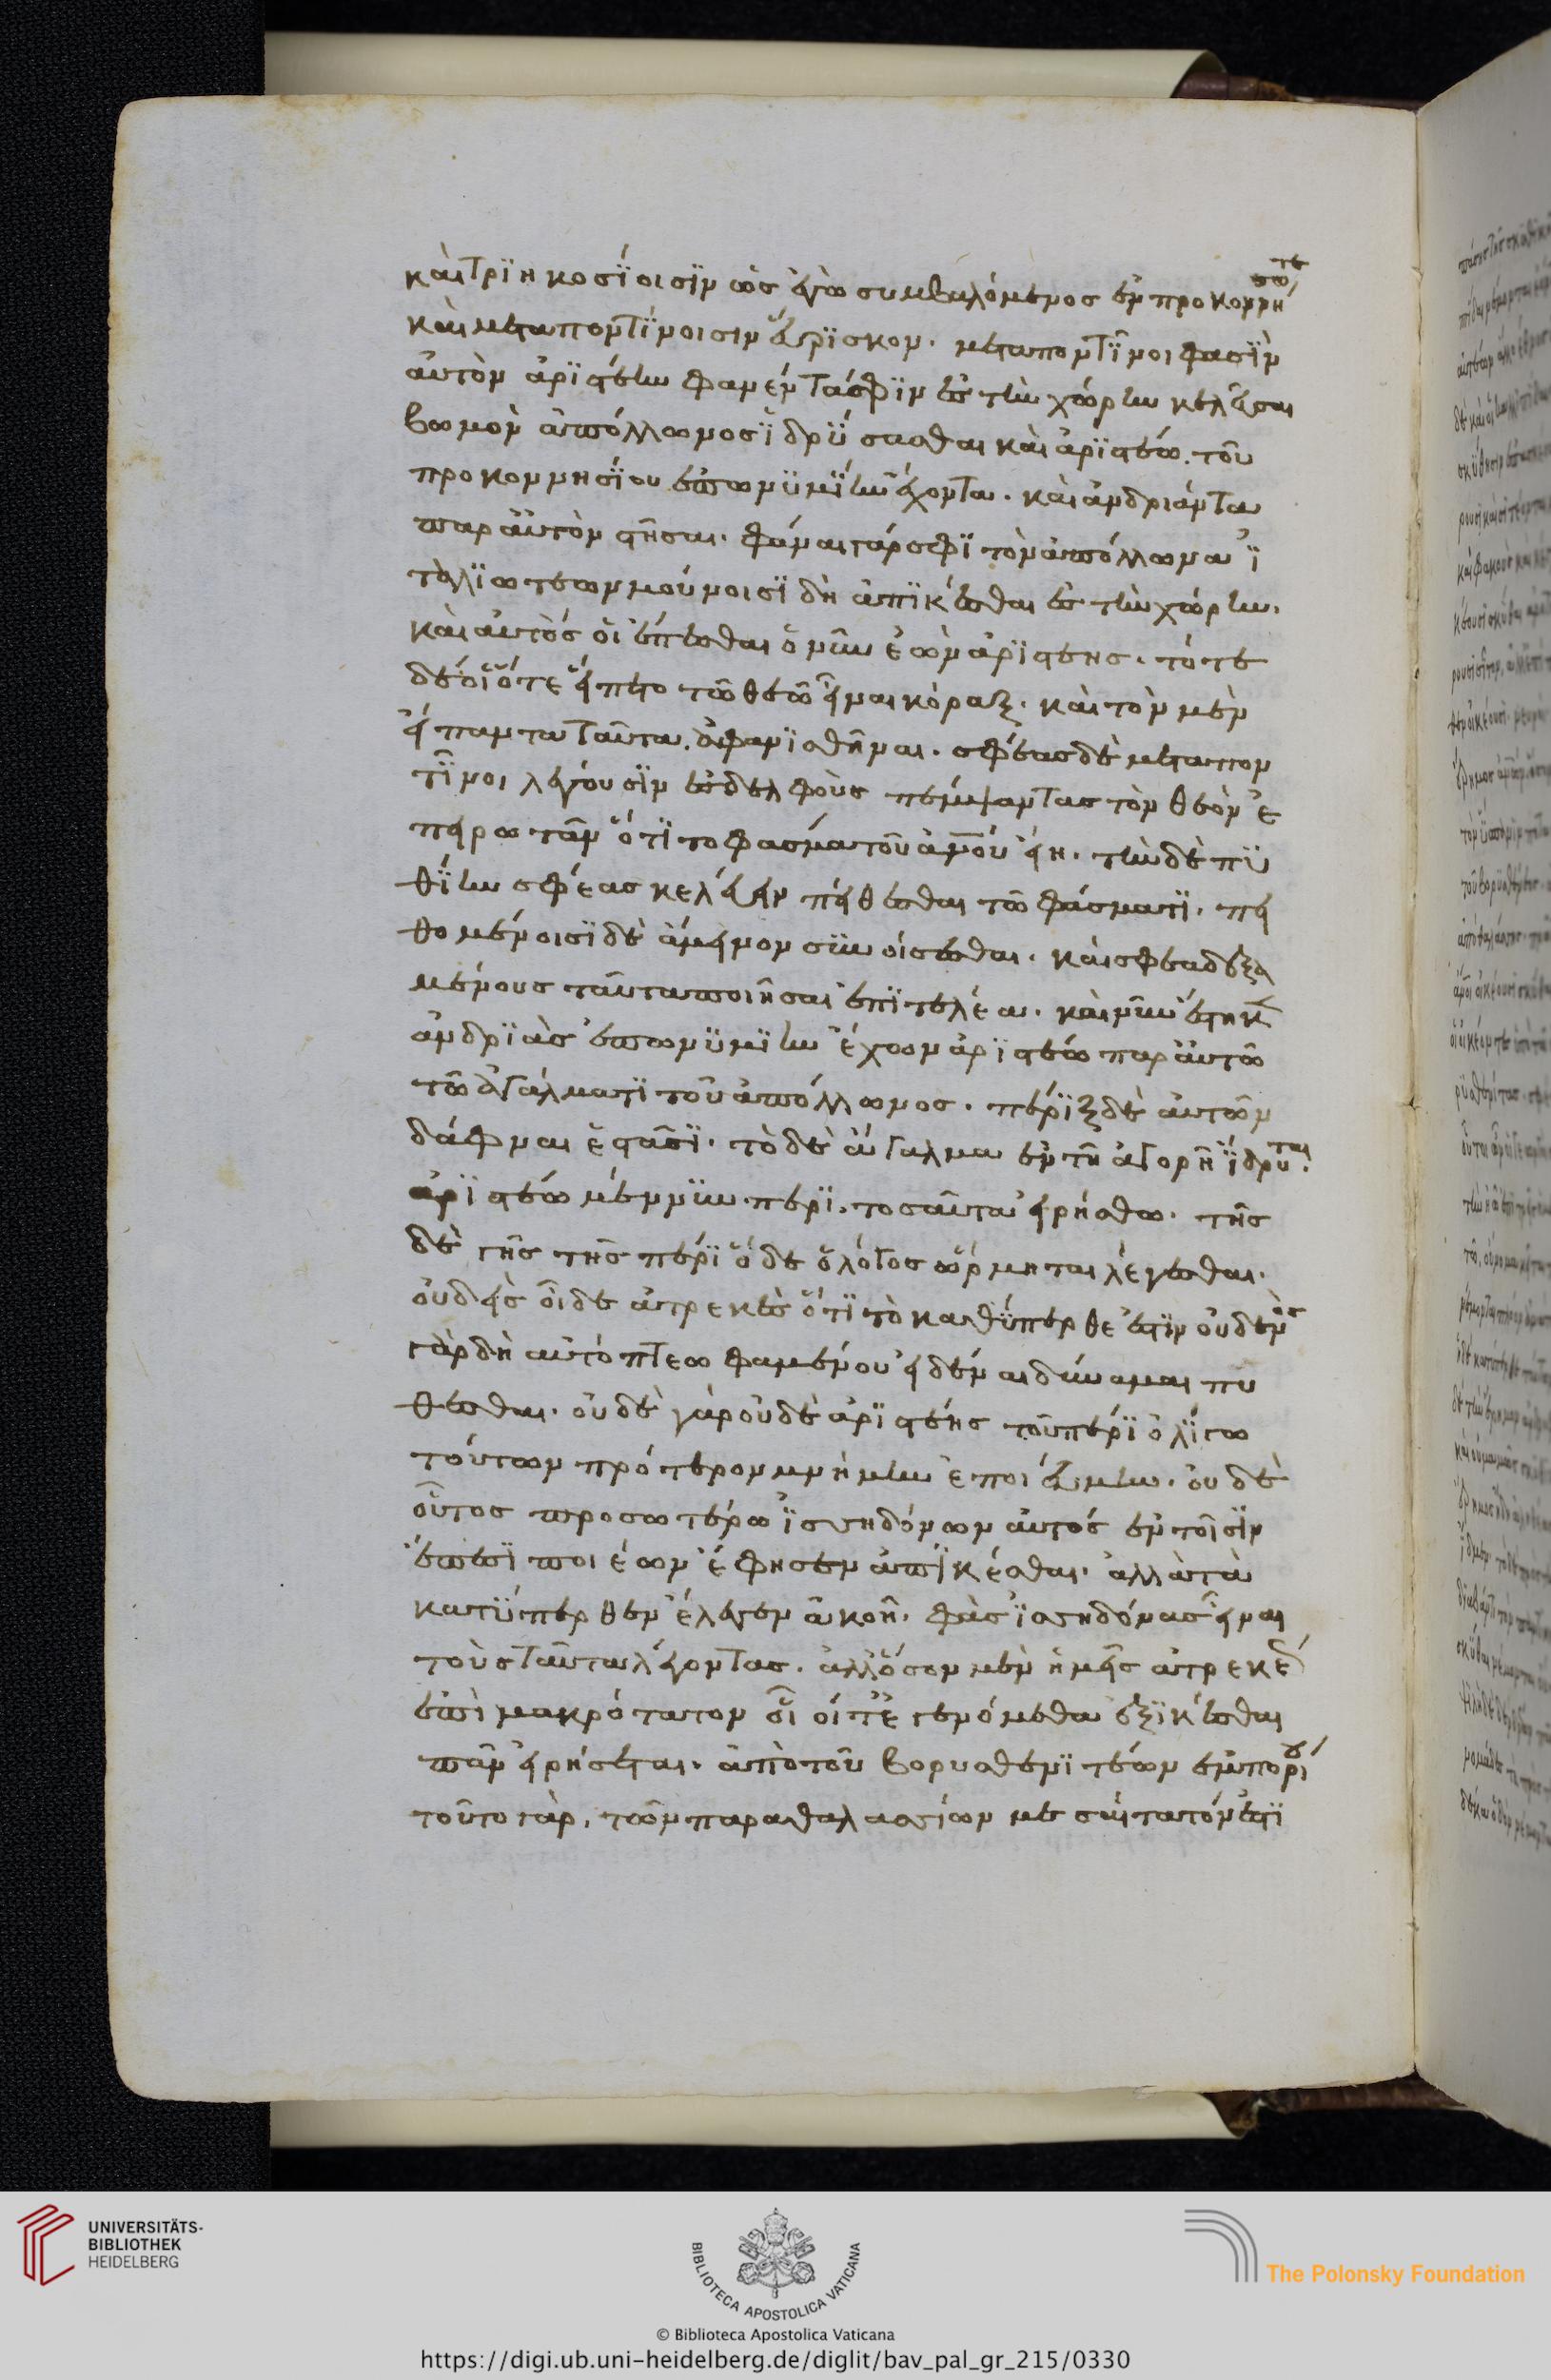 καὶ τριηκοσίοισιν ὡς ἐγὼ συμβαλόμενος ἐν προκοννή
σω τε
καὶ μεταποντίνοισιν εὕρισκον. μεταποντῖνοι φασὶν
αὐτὸν ἀριστέην φανέντα σφιν ἐς τὴν χώρην κελεῦσαι
βωμὸν ἀπόλλωνος ἱδρύσασθαι καὶ ἀριστέω. τοῦ
προκοννησίου ἐπωνυμίην ἔχοντα. καὶ ἀνδριάντα
παρ αὐτὸν στῆσαι. φάναι γάρ σφι τὸν ἀπόλλωνα ἰ
ταλιωτέων μούνοισι δὴ ἀπικέσθαι ἐς τὴν χώρην.
καὶ αὐτός οἱ ἕπεσθαι ὁ νῦν ἐὼν ἀριστέης. τότε
δὲ οἱ ὅτε εἵπετο τῶ θεῶ εἶναι κόραξ. καὶ τὸν μὲν
εἴπαντα ταῦτα. ἀφανισθῆναι. σφέας δὲ μεταπον
τῖνοι λέγουσιν ἐς δελφοὺς πέμψαντας τὸν θεὸν ἐ
πειρωτᾶν ὅτι το φάσμα τοῦ ἀνου εἴη. τὴν δὲ πυ
θίην σφέας κελεύειν πείθεσθαι τῶ φάσματι. πει
θομένοισι δὲ ἄμεινον συνοίσεσθαι. καί σφεα δεξα
μένους ταῦτα ποιῆσαι ἐπιτελέα. καὶ νῦν ἕστηκε
ἀνδριὰς ἐπωνυμίην ἔχων ἀριστέω παρ αὐτῶ
τῶ ἀγάλματι τοῦ ἀπόλλωνος. πέριξ δὲ αὐτῶν
δάφναι ἑστᾶσι. τὸ δὲ ἄγαλμα ἐν τῆ ἀγορῆ ἵδρυται.
ἀριστέω μέν νυν πέρι. τοσαῦτα εἰρήσθω. τῆς
δὲ γῆς τῆς πέρι ὅδε ὁ λόγος ὥρμηται λέγεσθαι.
οὐδεὶς οἶδε ἀτρεκὲς ὅτι τὸ κατύπερθε ἐστιν οὐδενὸς
γὰρ δὴ αὐτόπτεω φαμένου εἰδέναι δύναμαι πυ
θέσθαι. οὐδὲ γὰρ οὐδὲ ἀριστέης τοῦ πέρι ὀλίγω
τούτων πρότερον μνήμην ἐποιεύμην. οὐδὲ
οὗτος προσωτέρω ἰσσηδόνων αὐτός ἐν τοῖσιν
ἔπεσι ποιέων ἔφησεν ἀπικέσθαι. ἀλλὰ τὰ
κατύπερθεν ἔλεγεν ἀκοῆ. φὰς ἰσσηδόνας εἶναι
τοὺς ταῦτα λέγοντας. ἀλλ ὅσον μὲν ἡμεῖς ἀτρεκέ
ἐπὶ μακρότατον οἷοί τε γενόμεθα ἐξικέσθαι
πᾶν εἰρήσεται. ἀπὸ τοῦ βορυσθενιτέων ἐμπορί
ου
τοῦτο γὰρ. τῶν παραθαλασσίων μεσαίτατόν ἐστι
UNIVERSITÄTS-
BIBLIOTHEK
HEIDELBERG
BIBLIOTECA APOSTOLICA VATICANA
The Polonsky Foundation
© Biblioteca Apostolica Vaticana
https://digi.ub.uni-heidelberg.de/diglit/bav_pal_gr_215/0330